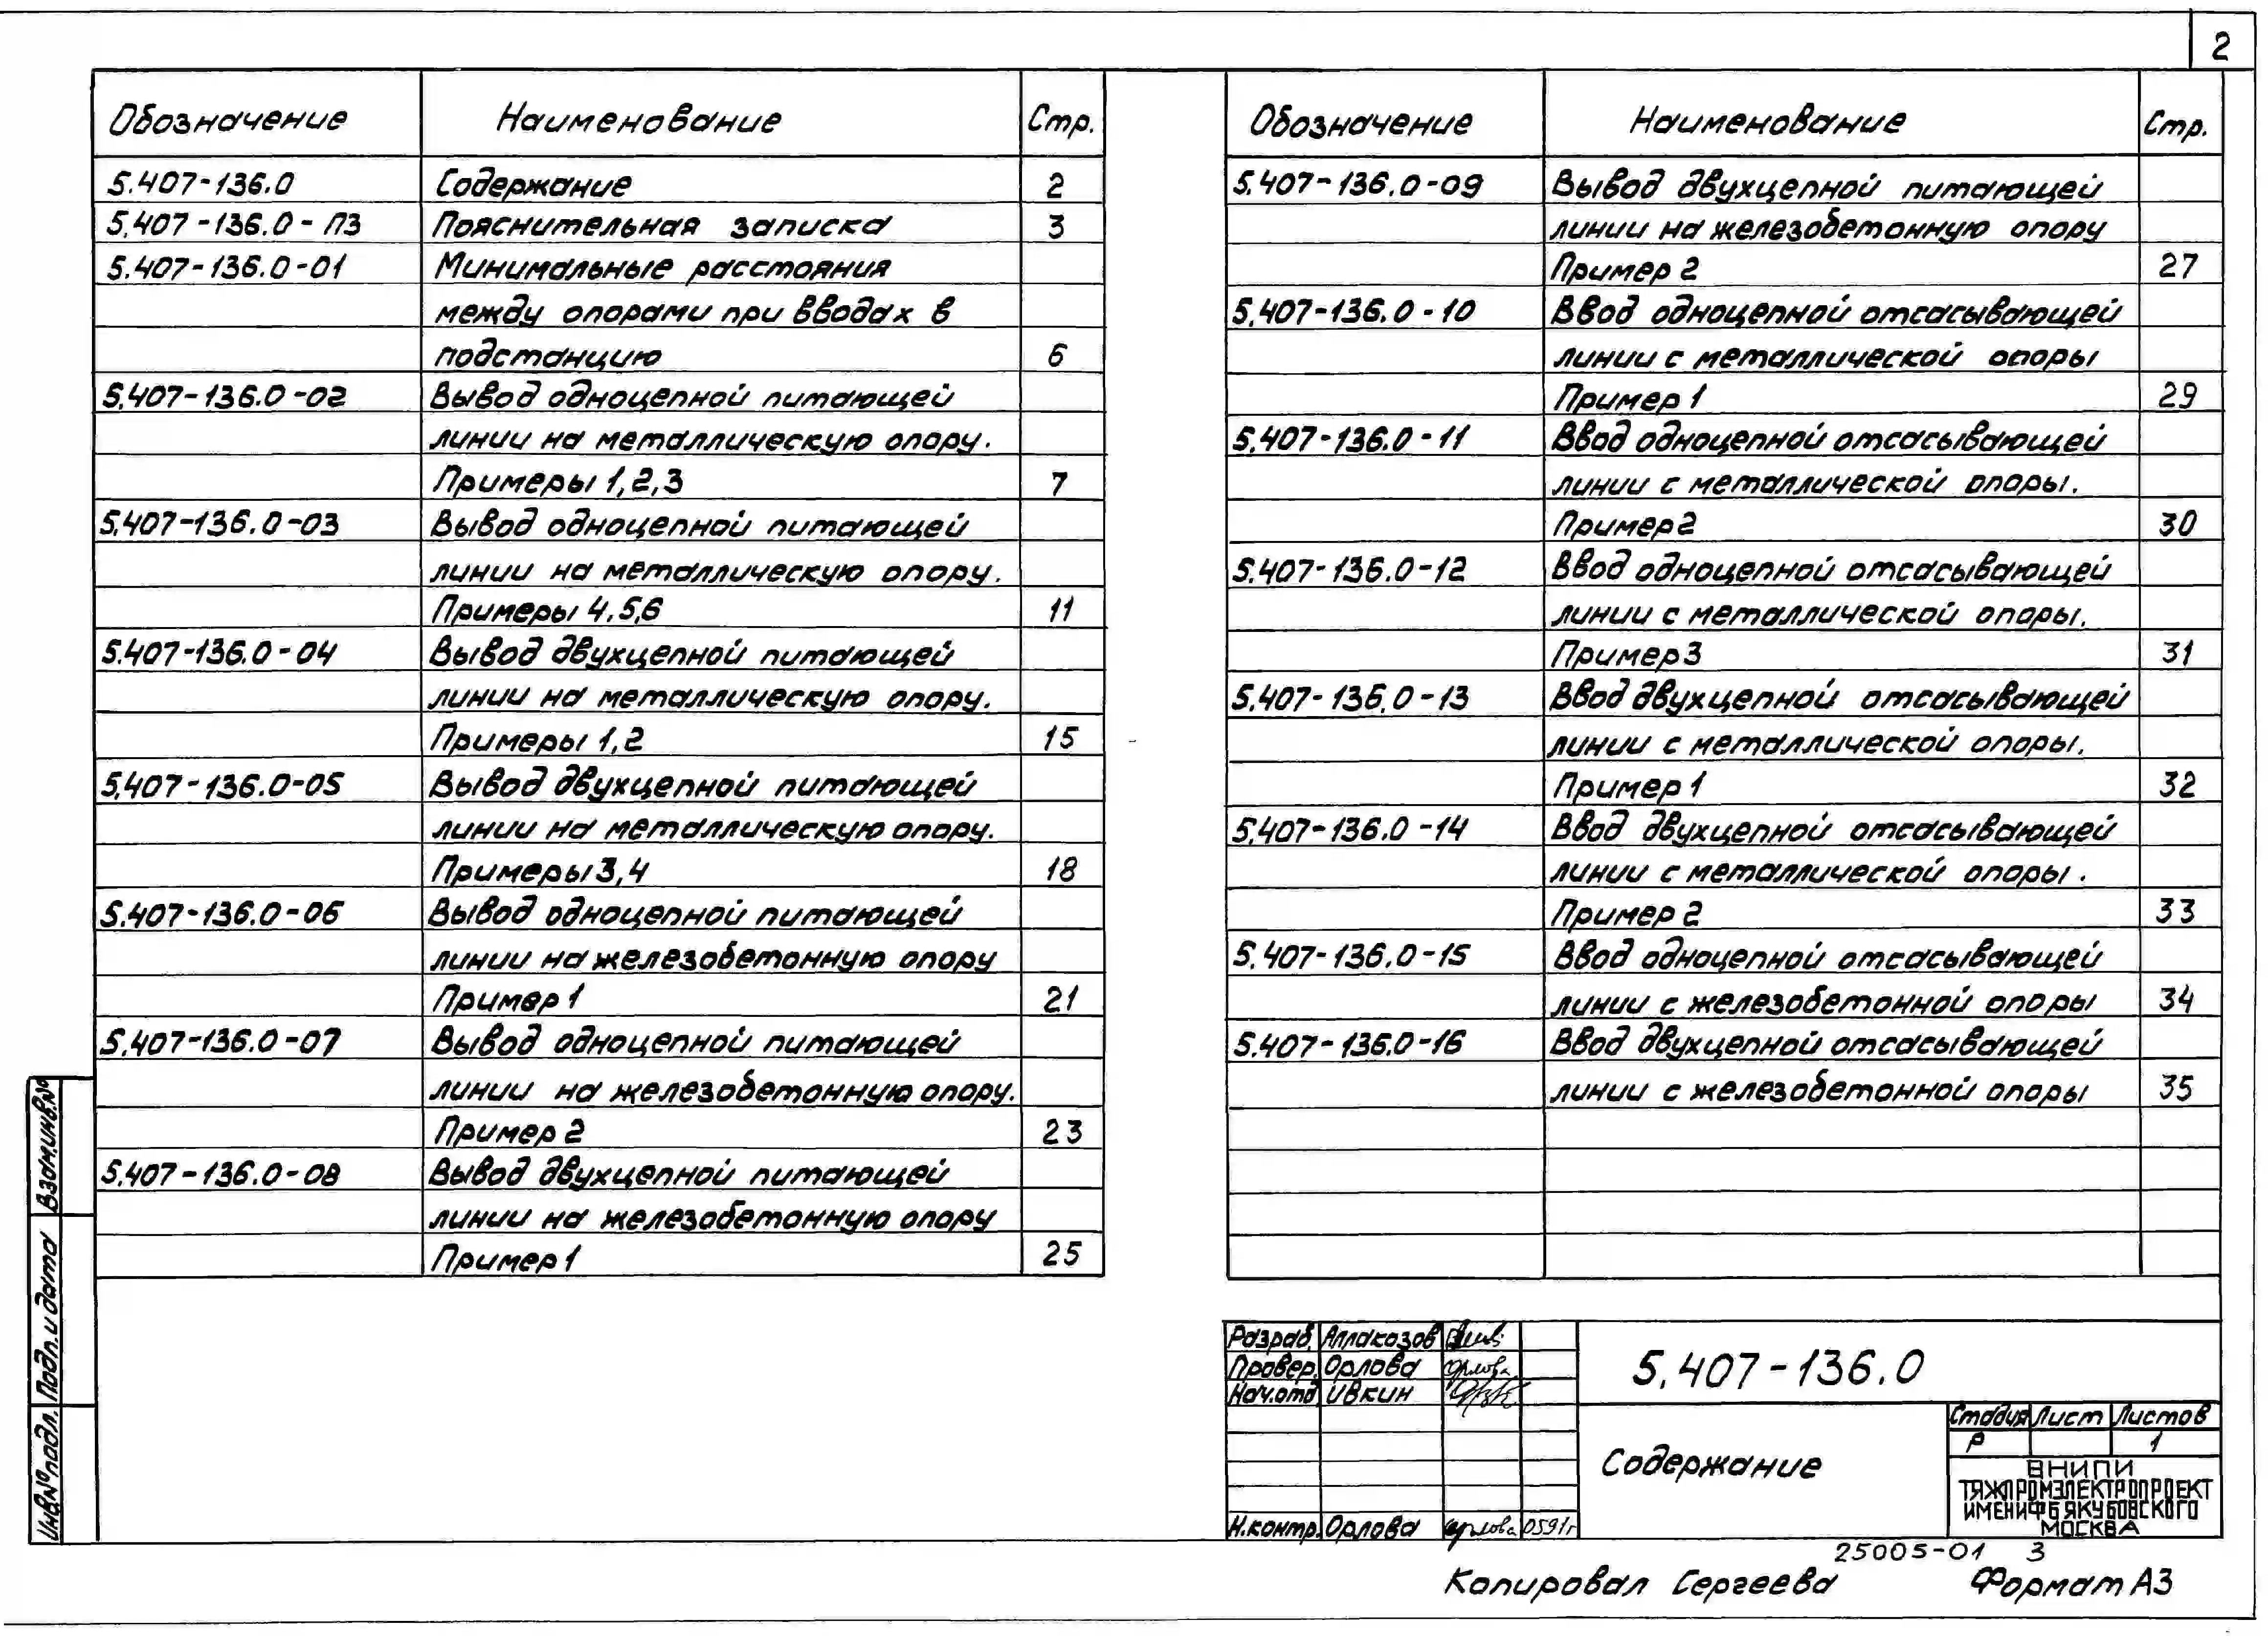 2
Обозначение Наименование Стр.
5.407-136.0 Содержание 2
5.407-136.0-ПЗ Пояснительная записка 3
5.407-136.0-01 Минимальные расстояния
между опорами при вводах в
подстанцию 6
5.407-136.0-02 Вывод одноцепной питающей
линии на металлическую опору.
Примеры 1,2,3 7
5.407-136.0-03 Вывод одноцепной питающей
линии на металлическую опору.
Примеры 4,5,6 11
5.407-136.0-04 Вывод двухцепной питающей
линии на металлическую опору.
Примеры 1,2 15
5.407-136.0-05 Вывод двухцепной питающей
линии на металлическую опору.
Примеры 3,4 18
5.407-136.0-06 Вывод одноцепной питающей
линии на железобетонную опору
Пример 1 21
5.407-136.0-07 Вывод одноцепной питающей
линии на железобетонную опору.
Пример 2 23
5.407-136.0-08 Вывод двухцепной питающей
линии на железобетонную опору
Пример 1 25
Обозначение Наименование Стр.
5.407-136.0-09 Вывод двухцепной питающей
линии на железобетонную опору
Пример 2 27
5.407-136.0-10 Ввод одноцепной отсасывающей
линии с металлической опоры
Пример 1 29
5.407-136.0-11 Ввод одноцепной отсасывающей
линии с металлической опоры.
Пример 2 30
5.407-136.0-12 Ввод одноцепной отсасывающей
линии с металлической опоры.
Пример 3 31
5.407-136.0-13 Ввод двухцепной отсасывающей
линии с металлической опоры.
Пример 1 32
5.407-136.0-14 Ввод двухцепной отсасывающей
линии с металлической опоры.
Пример 2 33
5.407-136.0-15 Ввод одноцепной отсасывающей
линии с железобетонной опоры 34
5.407-136.0-16 Ввод двухцепной отсасывающей
линии с железобетонной опоры 35
Взам.инв.№
Подп. и дата
Инв.№ подл.
Разраб. Аллакозов
Провер. Орлова Орлова
Нач.отд Ивкин
Н.контр. Орлова Орлова 0591г
5.407-136.0
Содержание
Стадия Лист Листов
Р 1
ВНИПИ
ТЯЖПРОМЭЛЕКТРОПРОЕКТ
ИМЕНИ Ф Б ЯКУБОВСКОГО
МОСКВА
25005-01 3
Копировал Сергеева Формат А3